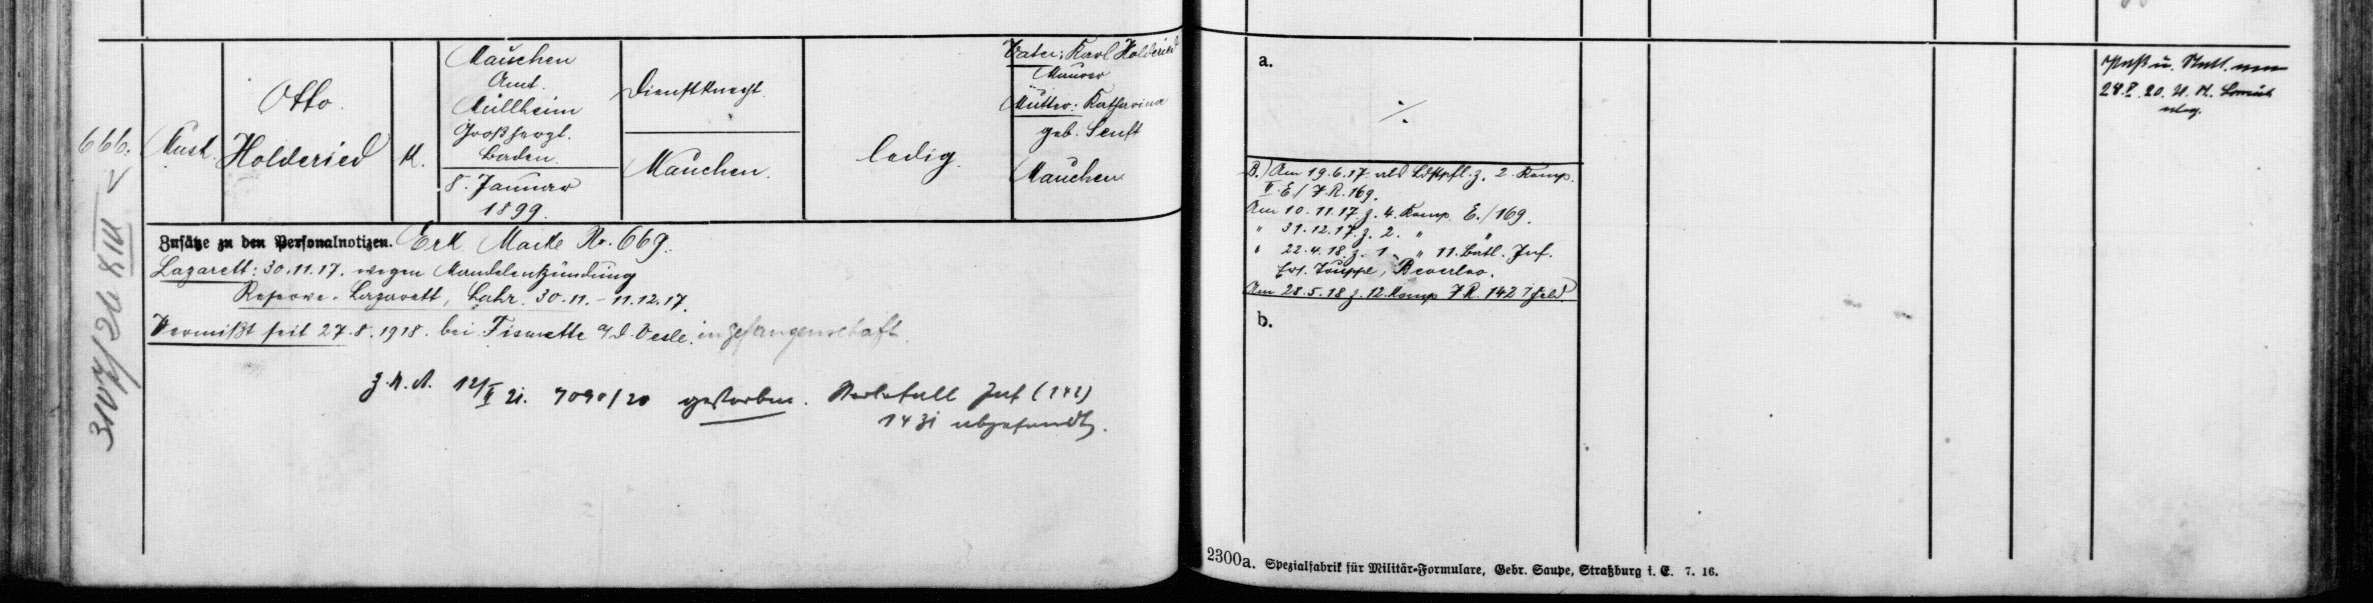 666.
Musk.
Otto
Holderied
K.
Mauchen
Amt.
Müllheim
Großherzgl.
Baden.
8. Januar
1899.
Dienstknecht
Mauchen.
ledig.
Vater: Karl Holderied
Maurer
Mutter: Katharina
geb. Senft
Mauchen
Zusätze zu den Personalnotizen. Erk Marke No. 669.
Lazarett: 30.11.17. wegen Mandelentzündung
Reserve-Lazarett, Lahr. 30.11. - 11.12.17.
Vermißt seit 27.8.1918. bei Fismette a/d. Vesle. in Gefangenschaft.
7090/20 gestorben.
1431 abgesandt.
3107/20 XIII
a.
B.) Am 19.6.17 als Ldstpfl. z. 2. Komp.
II. E/ J.R. 169.
Am 10.11.17. z. 4. Komp E./169.
" 31.12.17. z. 2. "
" 22.4.18. z. 1. " 11. Batl. Inf.
Ers. Truppe, Beverloo.
Am 28.5.18 z. 12. Komp J.R. 142 i Feld
b.
2300a. Spezialfabrik für Militär-Formulare, Gebr. Saupe, Straßburg i. E. 7. 16.